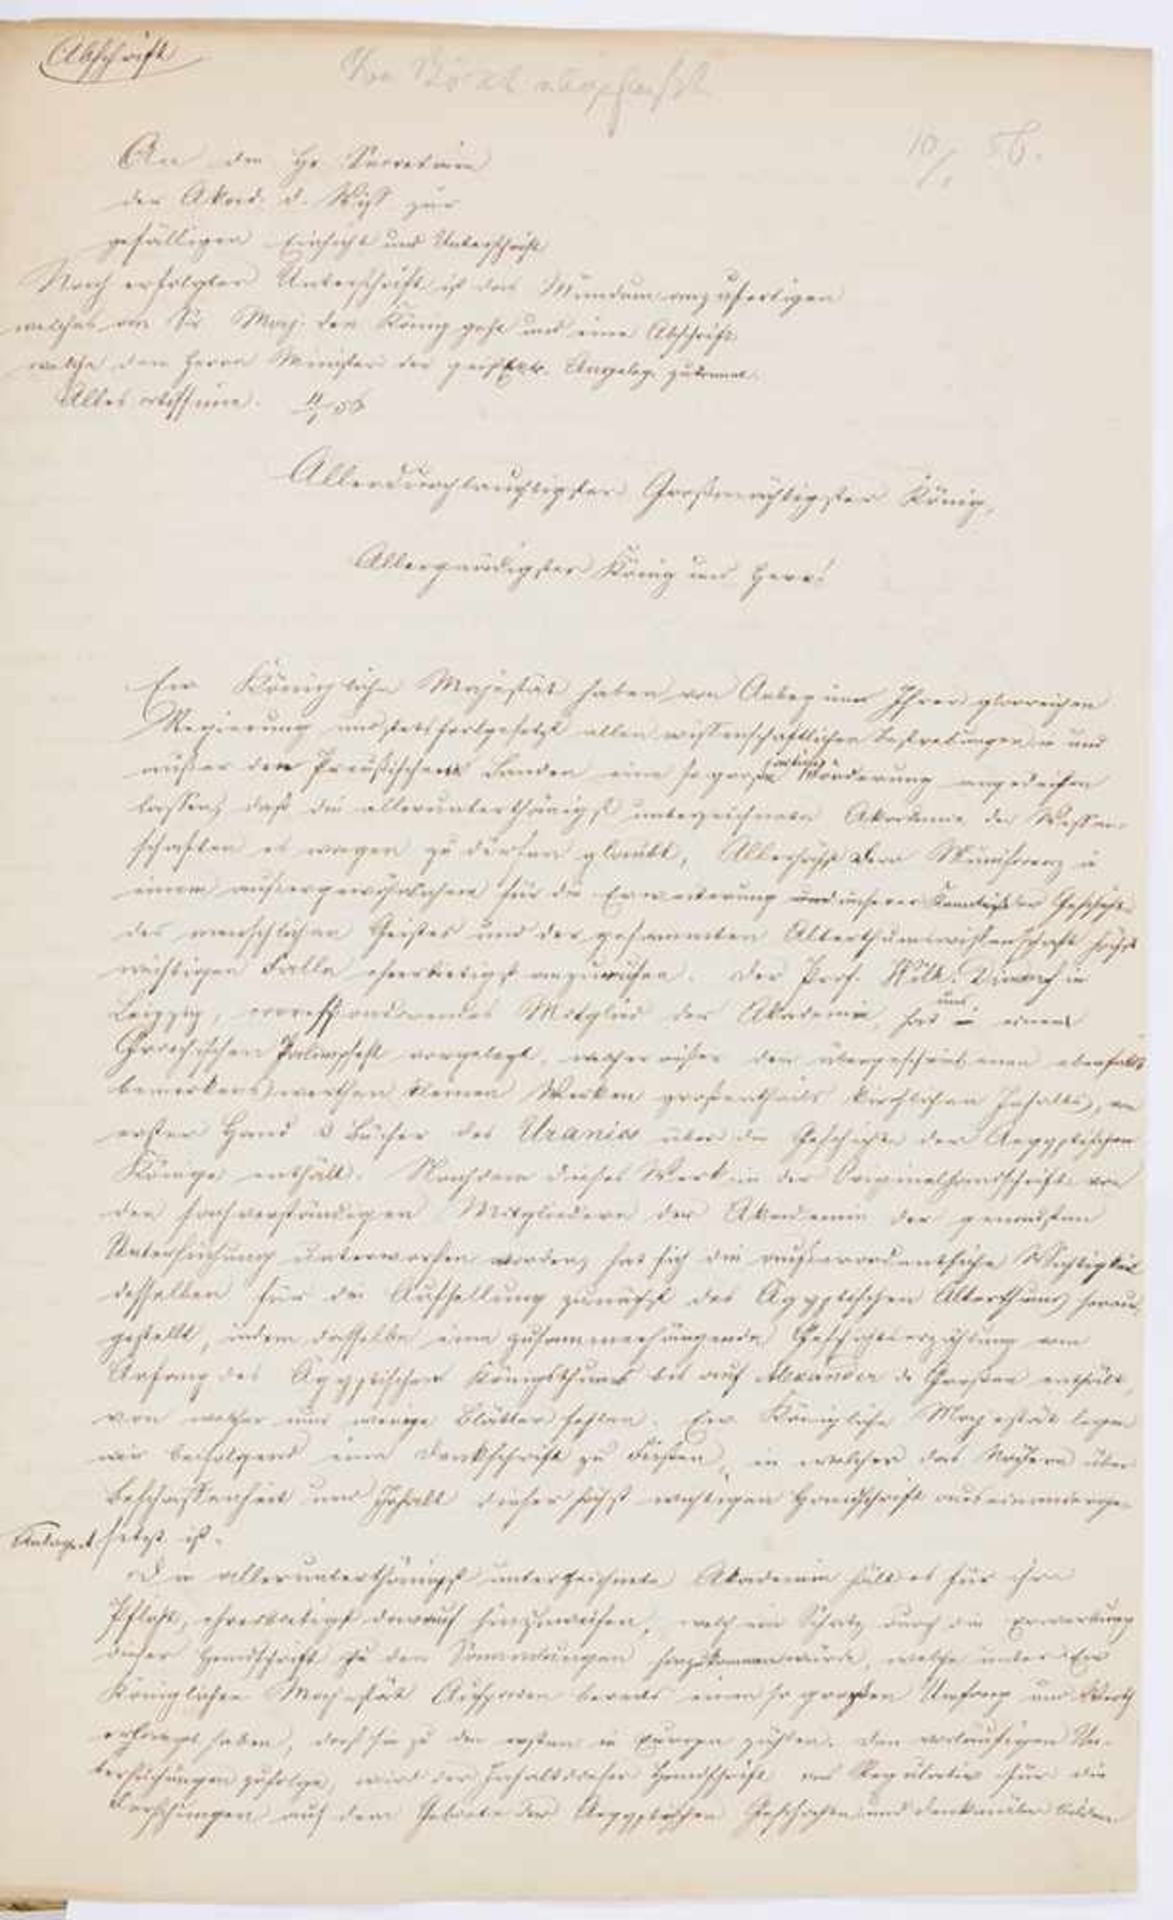 Abschrift
10/1 56.
An den Hr. Secretair
der Akad. d. Wiss zur
gefälligen Einsicht und Unterschrift
Nach erfolgter Unterschrift ist das Mundum anzufertigen
welches an Se Maj. den König geht und eine Abschrift
welche dem Herrn Minister der geistl. Angeleg. zukommt.
Alles citissime. 11/1 56
Allerdurchlauchtigster Großmächtigster König,
Allergnädigster König und Herr!
Ew Königliche Majestät haben von Anbeginn Ihrer glorreichen
Regierung und stets fortgesetzt allen wissenschaftlichen Bestrebungen in und
außer den Preußischen Landen eine so große Förderung angedeihen
lassen, daß die allerunterthänigst unterzeichnete Akademie der Wissen-
schaften es wagen zu dürfen glaubt, Allerhöchst Dero Munificenz in
einem außergewöhnlichen für die Erweiterung unserer Kenntniß der Geschichte
des menschlichen Geistes und der gesammten Alterthumswissenschaft höchst
wichtigen Falle ehrerbietigst anzurufen. Der Prof. Wilh. Dindorf in
Leipzig, correspondirendes Mitglied der Akademie, hat uns einen
Griechischen Palimpsest vorgelegt, welcher außer den übergeschriebenen ebenfalls
bemerkenswerthen kleinen Werken großentheils kirchlichen Inhalts, von
erster Hand 3 Bücher des Uranios über die Geschichte der Aegyptischen
Könige enthält. Nachdem dieses Werk in der Originalhandschrift von
den sachverständigen Mitgliedern der Akademie der genausten
Untersuchung unterworfen worden, hat sich die außerordentliche Wichtigkeit
desselben für die Aufhellung zunächst des Ägyptischen Alterthums heraus-
gestellt, indem dasselbe eine zusammenhängende Geschichtserzählung vom
Anfang des Ägyptischen Königthums bis auf Alexander d. Großen enthält,
von welcher nur wenige Blätter fehlen. Ew Königliche Majestät legen
wir beifolgend eine Denkschrift zu Füßen, in welcher das Nähere über
Beschaffenheit und Inhalt dieser höchst wichtigen Handschrift auseinanderge-
Anlage setzt ist.
Die allerunterthänigst unterzeichnete Akademie hält es für ihre
Pflicht, ehrerbietigst darauf hinzuweisen, welch ein Schatz durch die Erwerbung
dieser Handschrift zu den Sammlungen hinzukommen würde, welche unter Ew
Königlichen Majestät Auspicien bereits einen so großen Umfang und Werth
erlangt haben, daß sie zu den ersten in Europa zählen. Den vorläufigen Un-
tersuchungen zufolge, wird der Inhalt dieser Handschrift ein Regulativ für die
Forschungen auf dem Gebiete der Aegyptischen Geschichte und Denkmäler bilden